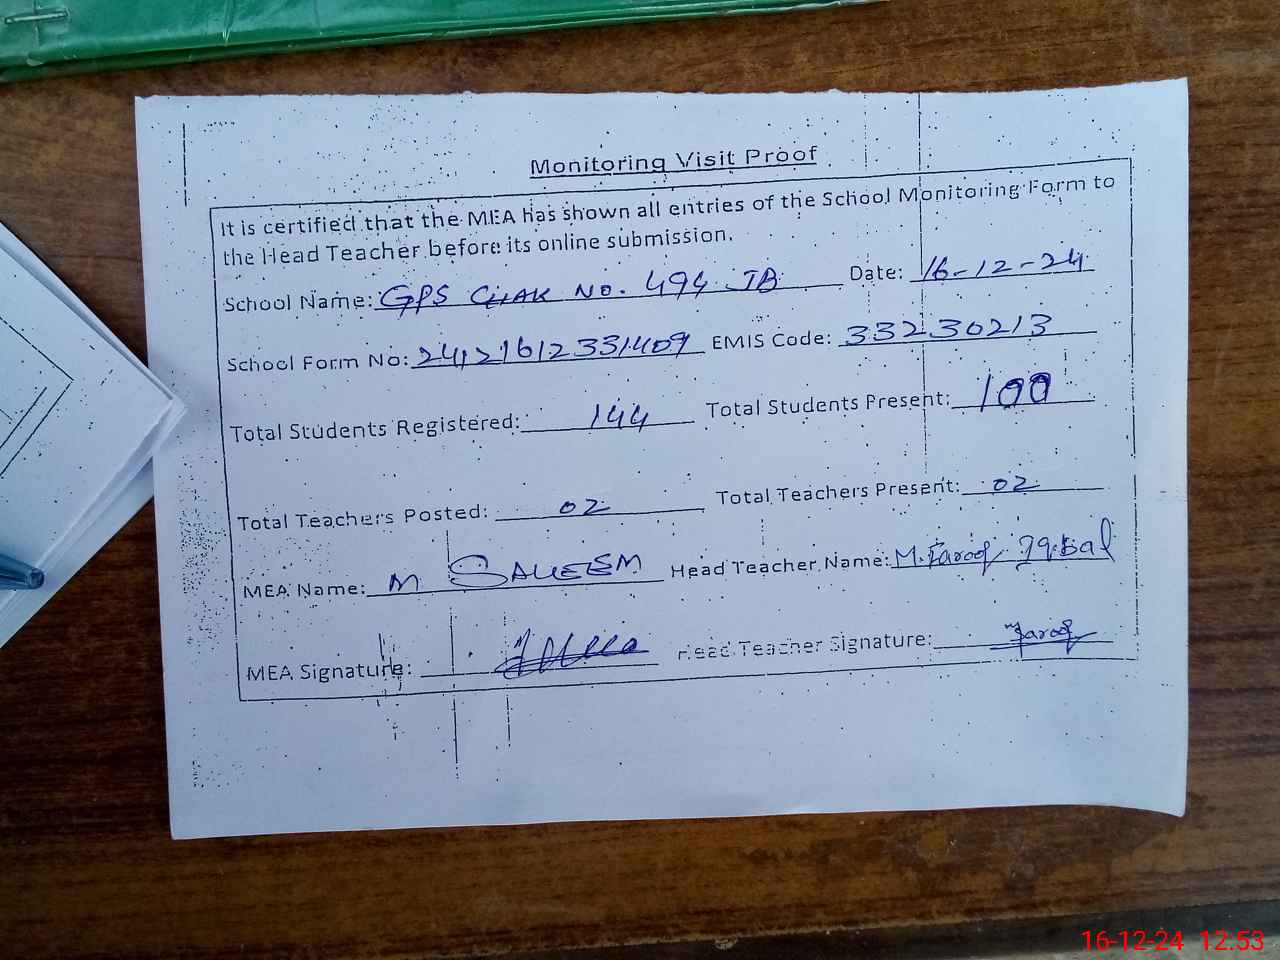 Monitoring Visit Proof
It is certified that the MEA has shown all entries of the School Monitoring Form to
the Head Teacher before its online submission.
School Name: GPS CHAK NO. 494 JB Date: 16-12-24
School Form No: 24121612331409 EMIS Code: 33230213
Total Students Registered: 144 Total Students Present: 100
Total Teachers Posted: 02 Total Teachers Present: 02
MEA Name: M SALEEM Head Teacher Name: M. Farooq Iqbal
MEA Signature: Head Teacher Signature: Farooq
16-12-24 12:53